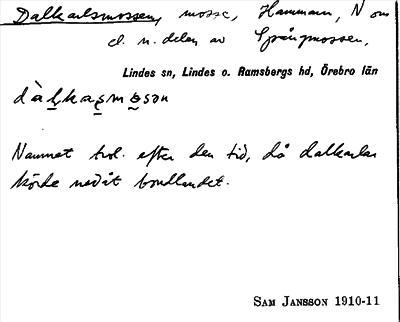 Dalkarlsmossen, mosse, Hammarn, N om
d. n. delen av Spångmossen.
Lindes sn, Lindes o. Ramsbergs hd, Örebro län
dàḷkaṣmo̤sən
Namnet trol. efter den tid, då dalkarlar
körde nedåt bondlandet.
SAM JANSSON 1910-11